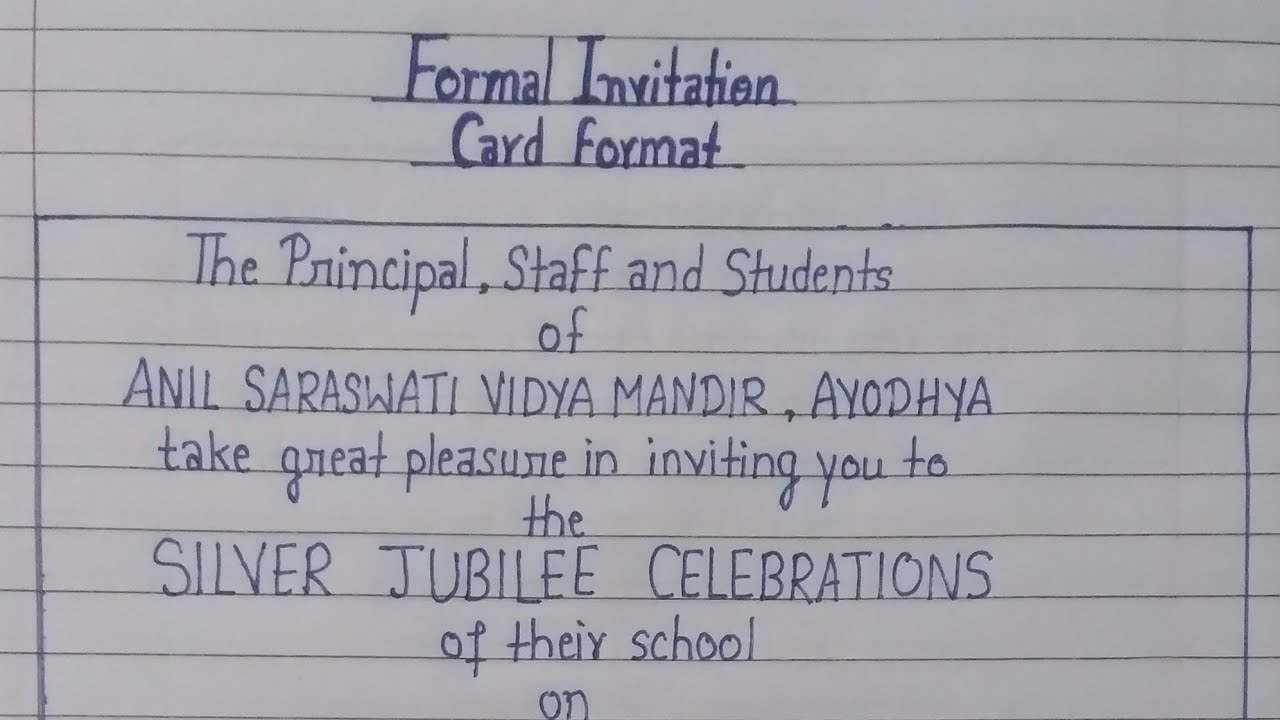 Formal Invitation
Card Format
The Principal, Staff and Students
of
ANIL SARASWATI VIDYA MANDIR, AYODHYA
take great pleasure in inviting you to
the
SILVER JUBILEE CELEBRATIONS
of their school
on